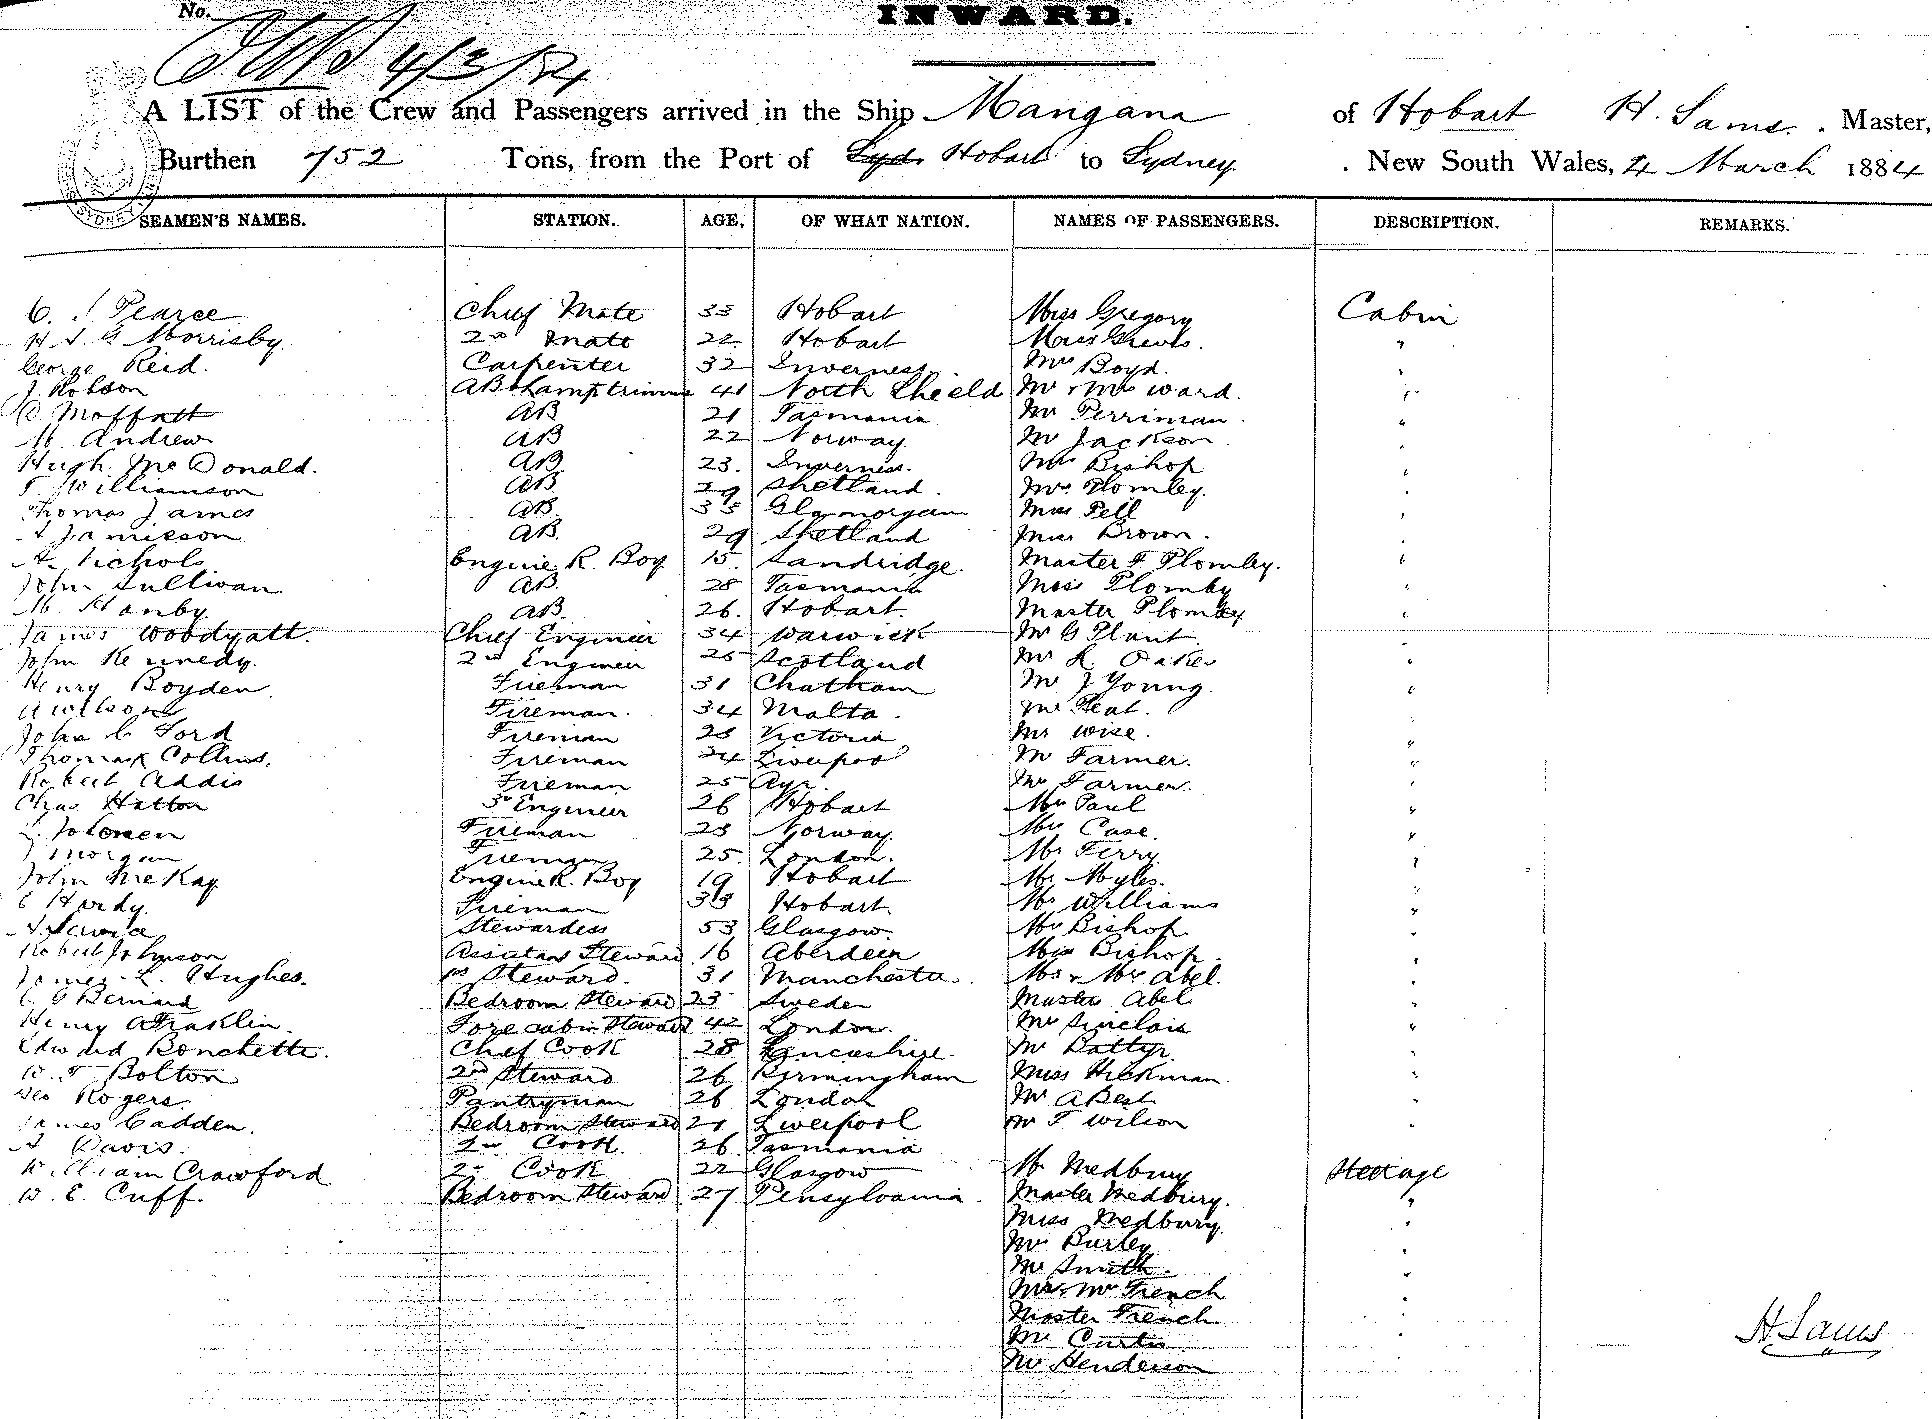 No.
INWARD.
4/3/84
A LIST of the Crew and Passengers arrived in the Ship Mangana of Hobart H. Sams. Master,
Burthen 752 Tons, from the Port of Hobart to Sydney. New South Wales, 4 March 1884
SYDNEY
SEAMEN'S NAMES. STATION. AGE, OF WHAT NATION. NAMES OF PASSENGERS. DESCRIPTION. REMARKS.
Pearce Chief Mate 33 Hobart Miss Gregory Cabin
Morrisby 2nd Mate 22 Hobart Miss "
George Reid. Carpenter 32 Inverness Mrs Boyd. "
J Robson AB & Lamptrimmer 41 North Shield Mr & Mrs Ward. "
Moffatt AB 21 Tasmania Mr Perriman. "
M. Andrew AB 22 Norway. Mr Jackson. "
Hugh McDonald. AB 23. Inverness. Mr Bishop "
Williamson AB. 29 Shetland. Mrs Plomley. "
Thomas James AB. 35 Glamorgan Miss Pell "
Jamieson AB. 29 Shetland Miss Brown. "
Nichols Engine R. Boy 15. Sandridge. Master F Plomley. "
John Sullivan AB. 28 Tasmania Miss Plomley "
M. Hanby AB. 26. Hobart. Master Plomley "
James Woodyatt. Chief Engineer 34 Warwick Mr G Plant. "
John Kennedy. 2nd Engineer 25 Scotland Mr "
Henry Boyden. Fireman 31 Chatham Mr J Young. "
A Wilson Fireman. 34 Malta. Mr Peat. "
John C Ford Fireman 23 Victoria Mr Wise. "
Thomas Collins. Fireman 24 Liverpool Mr Farmer. "
Robert Addis Fireman 25 Ayr. Mrs Farmer. "
Chas Hatton 3rd Engineer 26 Hobart Mr Paul "
Fireman 23 Norway. Mr Case. "
J Morgan Fireman 25. London. Mr Ferry. "
John McKay Engine R. Boy 19 Hobart Mr Myles. "
Hardy. Fireman 33 Hobart. Mr Williams "
Stewardess 53 Glasgow. Mr Bishop. "
Robert Johnson Assistant Steward 16 Aberdeen Miss Bishop. "
James L. Hughes. 1st Steward. 31 Manchester. Mr & Mrs Abel. "
Bernard Bedroom Steward 23 Sweden Master Abel "
Henry Franklin. Fore cabin Steward 42 London. Mr Sinclair "
Edward Ronchette. Chef Cook 28 Lancashire. Mr Battye. "
W. T Bolton 2nd Steward 26 Birmingham Miss Hickman. "
Geo Rogers. Pantryman 26 London Mr A Best. "
James Cadden. Bedroom Steward 21 Liverpool Mr T Wilson "
Davis. 2nd Cook. 26 Tasmania
William Crawford 2nd Cook 22 Glasgow Mr Medbury Steerage
W. E. Cuff. Bedroom Steward 27 Pensylvania. Master Medbury. "
Miss Medbury. "
Mr Burley "
Mr Smith. "
Mr & Mrs French "
Master French. "
Mr Curtis "
Mr Henderson
H Sams